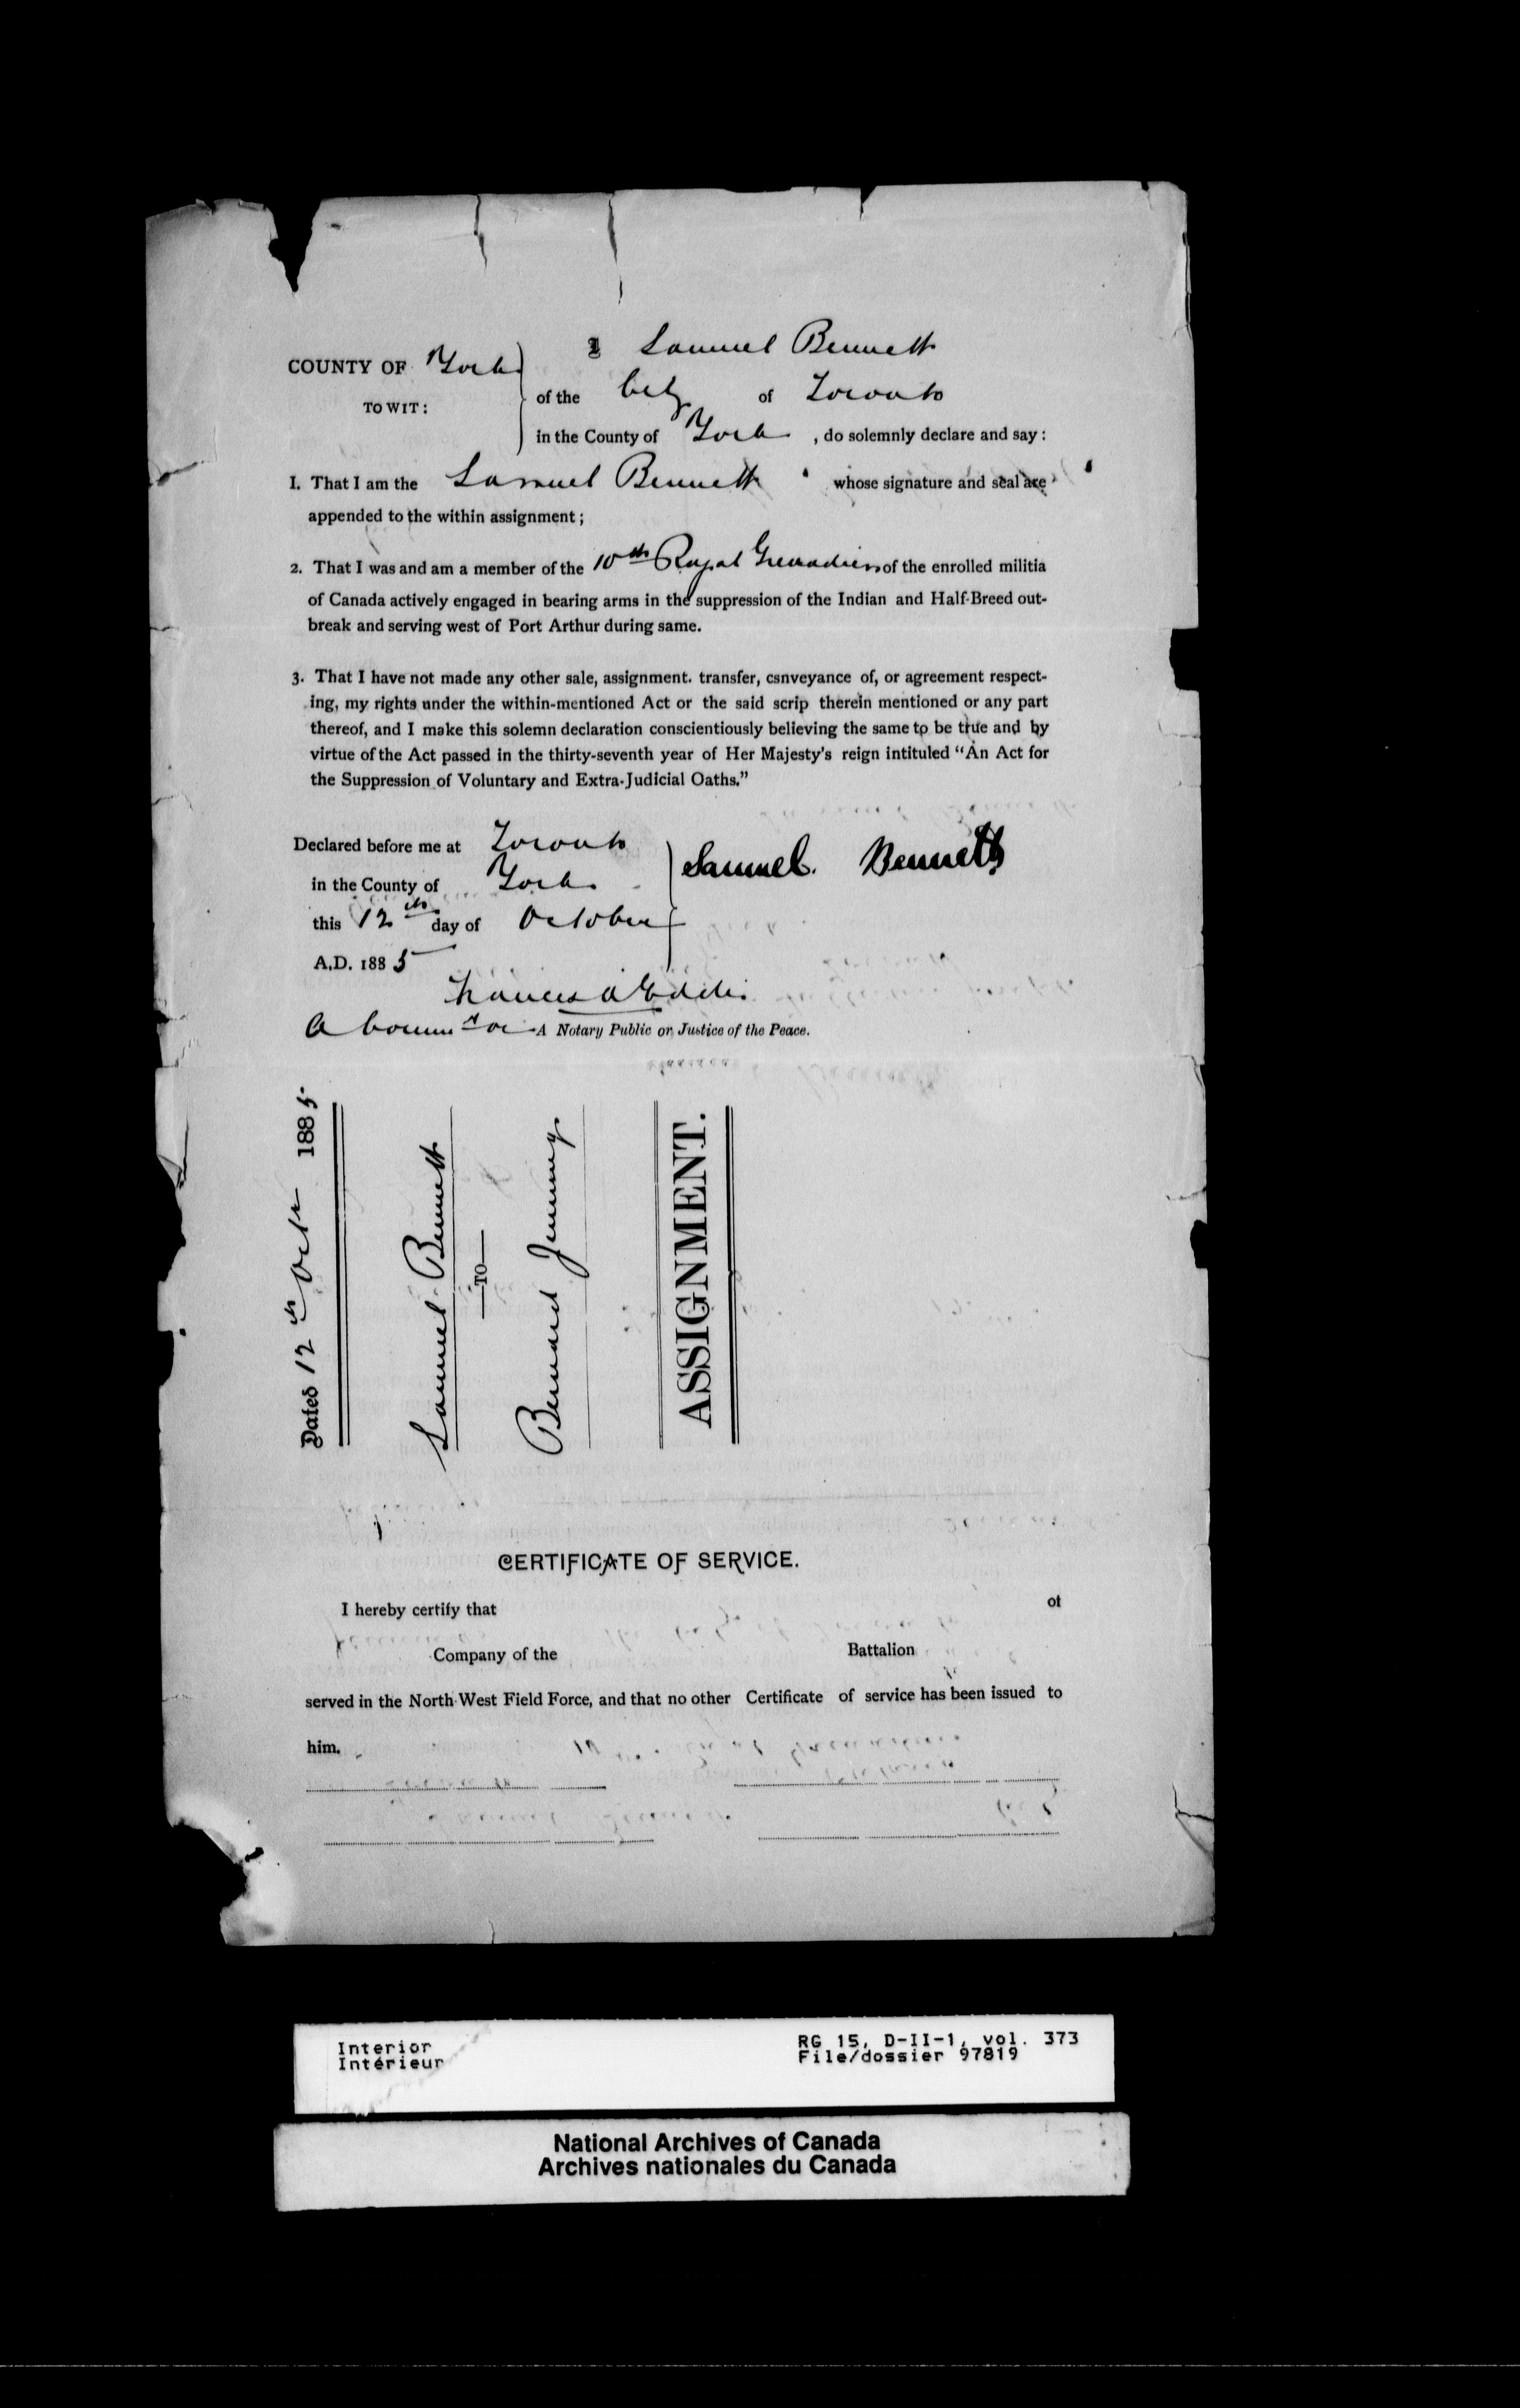 I Samuel Bennett
COUNTY OF York
TO WIT:
of the City of Toronto
in the County of York , do solemnly declare and say:
1. That I am the Samuel Bennett whose signature and seal are
appended to the within assignment;
2. That I was and am a member of the 10th Royal Grenadiers of the enrolled militia
of Canada actively engaged in bearing arms in the suppression of the Indian and Half-Breed out-
break and serving west of Port Arthur during same.
3. That I have not made any other sale, assignment. transfer, csnveyance of, or agreement respect-
ing, my rights under the within-mentioned Act or the said scrip therein mentioned or any part
thereof, and I make this solemn declaration conscientiously believing the same to be true and by
virtue of the Act passed in the thirty-seventh year of Her Majesty's reign intituled "An Act for
the Suppression of Voluntary and Extra-Judicial Oaths."
Declared before me at Toronto
in the County of York
this 12th day of October
A.D. 1885
Samuel Bennett
Frances A Eddis
A Commr or A Notary Public or Justice of the Peace.
Dated 12th Oct 1885
Samuel Bennett
TO
Bernard Jennings
ASSIGNMENT.
CERTIFICATE OF SERVICE.
I hereby certify that ot
Company of the Battalion
served in the North-West Field Force, and that no other Certificate of service has been issued to
him.
Interior
Intérieur
RG 15, D-II-1, vol. 373
File/dossier 97819
National Archives of Canada
Archives nationales du Canada